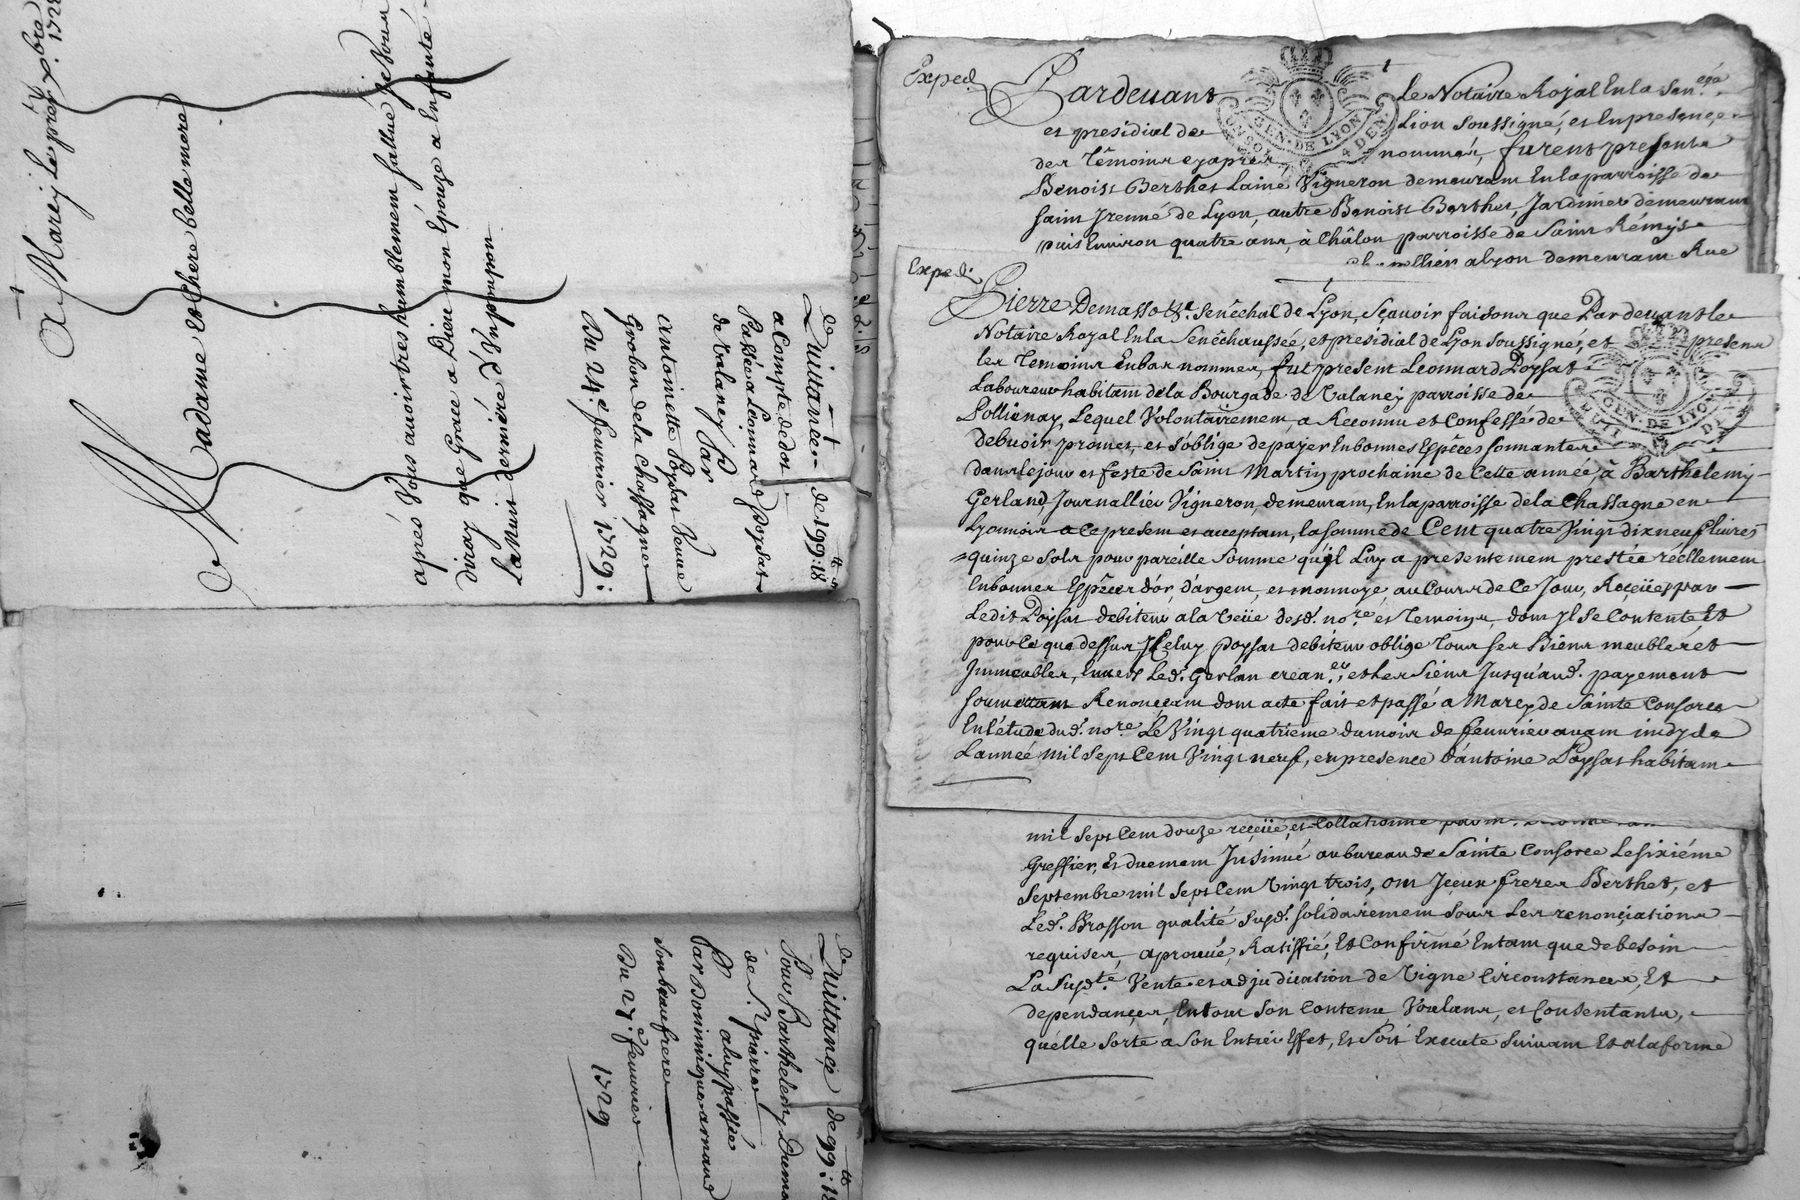 A Marcy le prer. xbre 1728
Madame et chere belle mere
aprés Vous auoir tres humblement salluë je Vous
diray que Grace a Dieu mon Epouze a Enfanté
La Nuit derniére d'Un poupon
Quittance de 199: 18
a Compte de dot
Passée a Leonnard Poysat
de Valaney Par
Antoinette Poysat Veuue
Grobon de la Chassagne
Du 24e feuurier 1729:
Quittance de 99: 18
Pour Barthelemy
de St. pierre
a luy passée
Par Dominique arnaud
son beaufrere
Du 27e feuurier
1729
Exped.
Pardeuant Le Notaire Royal En la Sen.
et presidial de Lion soussigné, et En presence
des Témoins cyapres nommés, furent presents
Benoist Berthet Laine Vigneron demeurant En la parroisse de
saint Irenné de Lyon, autre Benoist Berthet, Jardinier demeurant
puis Enuiron quatre ans, à Châlon parroisse de Saint Rémy
a Lyon demeurant Rue
GEN. DE LYON
4 DEN.
Exped.
Pierre Demasso Senêchal de Lyon, Sçauoir faisons que Pardeuant le
Notaire Royal En la Senêchaussée, et présidial de Lyon soussigné, et presens
les Temoins Enbas nommes, fut present Leonnard Poysat
Laboureur habitant de la Bourgade de Valaney parroisse de
Sollienay, Lequel Volontairement, a Reconnu et Confessé de
debuoir promet, et s'oblige de payer En bonnes Espêces sonnante
dans le jour et feste de Saint Martin prochaine de Cette année, à Barthelemy
Gerland, Journallier Vigneron, demeurant, En la parroisse de la Chassagne en
Lyonnois a Ce present et acceptant, la somme de Cent quatre Vingt dix neuf Liures
quinze sols pour pareille somme qu'il Luy a presentement prestée réellement
En bonnes Espêces d'or, d'argent, et monnoye, au Cours de Ce Jour, Reçeües par
Ledit Poysat debiteur a la Veüe desd. nore. et Temoins, dont Il se Contente, Et
pour Ce que dessus Iceluy poysat debiteur oblige Tous ses Biens meubles et
Immeubles, Enuers Led. Gerlan crean.er, et les Siens Jusqu'aud. payement
soumettant Renonceant dont acte fait et passé a Marcy de Sainte Consorce
En l'étude dud. nore. Le Vingt quatrieme du mois de feuurier auant midy de
L'année mil Sept Cent Vingt neuf, en presence d'antoine Poysat habitant
GEN. DE LYON
mil Sept Cent douze reçeüe, et Collationné par
Greffier, Et duement Insinué au bureau de Sainte Consorce Le sixiéme
Septembre mil Sept Cent Vingt trois, ont Jceux freres Berthet, et
Led. Brosson qualité susd. solidairement sous Les renonçiations
requises, aprouué, Ratiffié, Et Confirmé Entant que de besoin
La Susdte. Vente et adjudication de Vigne Circonstances, Et
dependançes, En tout Son Contenu, Voulans, et Consentants,
qu'elle sorte a Son Entier Effet, Et soit Executé Suiuant Et a la forme